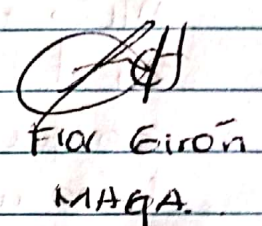 Flor Girón
MAGA.